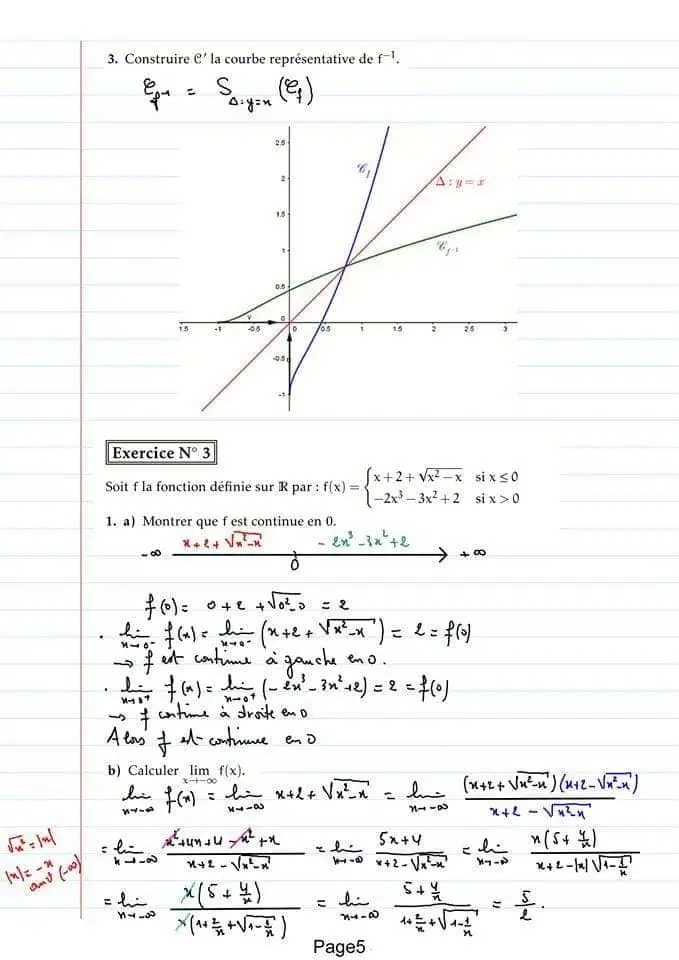 3. Construire 𝒞′ la courbe représentative de f⁻¹.
𝒞f⁻¹ = S Δ:y=x (𝒞f)
2.5
𝒞f
2
Δ : y = x
1.5
1
𝒞f⁻¹
0.5
0
1.5 -1 -0.5 0 0.5 1 1.5 2 2.5 3
-0.5
-1
Exercice N° 3
Soit f la fonction définie sur ℝ par : f(x) = { x + 2 + √(x² − x) si x ≤ 0
−2x³ − 3x² + 2 si x > 0
1. a) Montrer que f est continue en 0.
-∞ x+2+√(x²-x) 0 -2x³-3x²+2 +∞
f(0) = 0+2+√(0²-0) = 2
. lim x→0⁻ f(x) = lim x→0⁻ (x+2+√(x²-x)) = 2 = f(0)
→ f est continue à gauche en 0.
. lim x→0⁺ f(x) = lim x→0⁺ (-2x³-3x²+2) = 2 = f(0)
→ f continue à droite en 0
Alors f est continue en 0
b) Calculer lim x→−∞ f(x).
lim x→-∞ f(x) = lim x→-∞ x+2+√(x²-x) = lim x→-∞ (x+2+√(x²-x))(x+2-√(x²-x)) / (x+2-√(x²-x))
= lim x→-∞ (x²+4x+4-x²+x) / (x+2-√(x²-x)) = lim x→-∞ (5x+4) / (x+2-√(x²-x)) = lim x→-∞ x(5+4/x) / (x+2-|x|√(1-1/x))
√x² = |x|
|x| = -x
au v (-∞)
= lim x→-∞ x(5+4/x) / x(1+2/x+√(1-1/x)) = lim x→-∞ (5+4/x) / (1+2/x+√(1-1/x)) = 5/2.
Page5